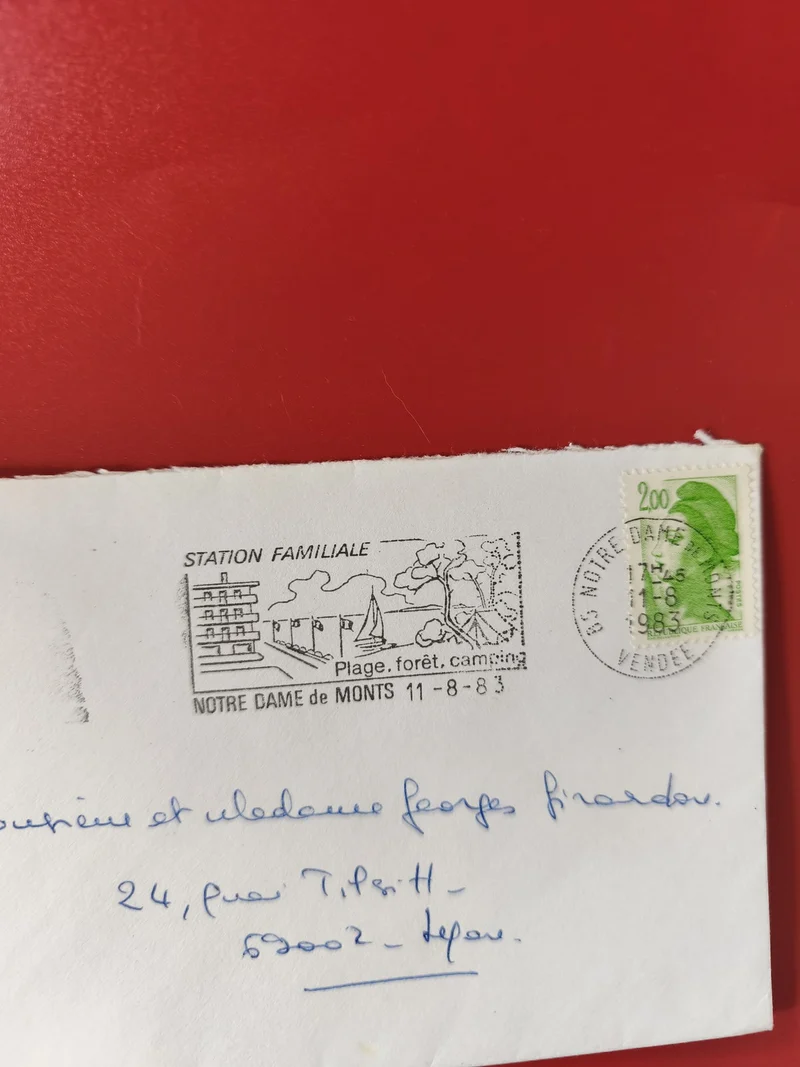 2,00
STATION FAMILIALE
Plage, forêt, camping
NOTRE DAME de MONTS 11-8-83
85 NOTRE DAME DE MONTS
17H45
11-8
1983
VENDEE
REPUBLIQUE FRANÇAISE
POSTES
Monsieur et Madame Georges Girardon.
24, quai Tilsitt -
69002 - Lyon.